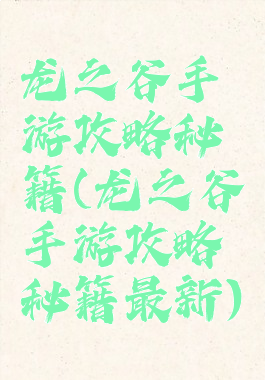 龙之谷手
游攻略秘
籍(龙之谷
手游攻略
秘籍最新)